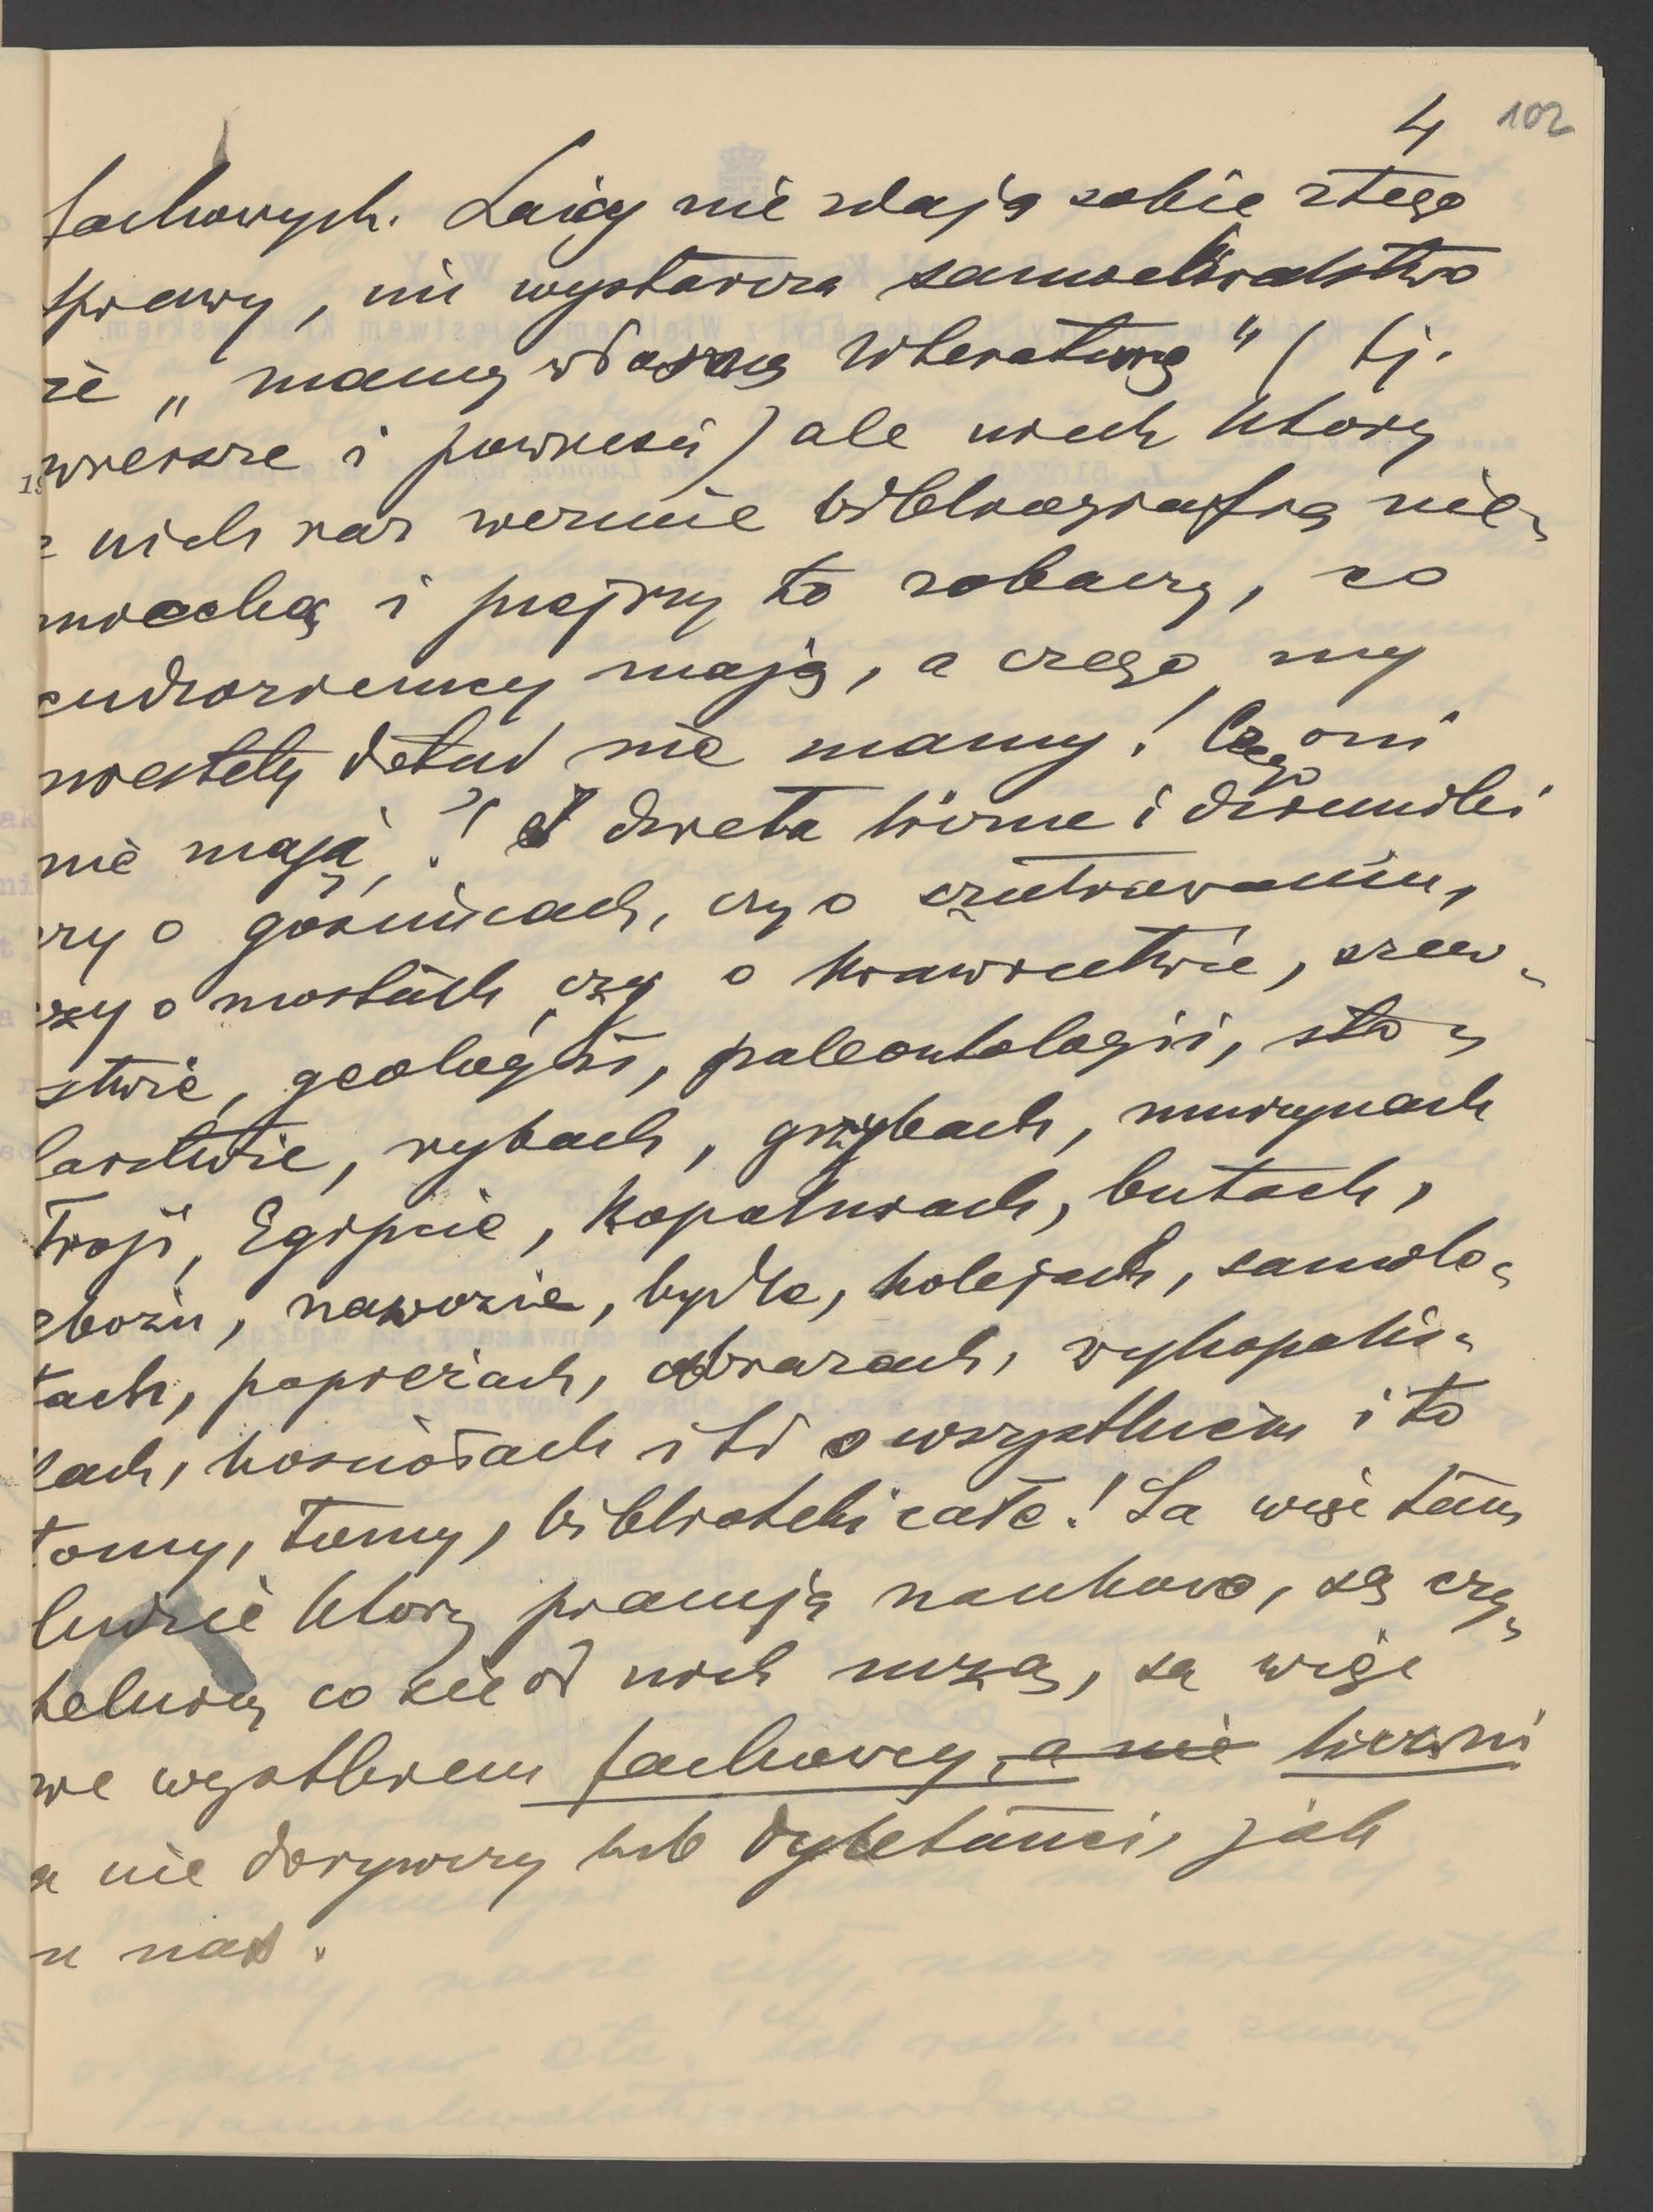 4 102
fachowych. Laicy nie zdają sobie z tego
sprawy, nie wystarcza samochwalstwo
że „mamy własną literaturę" (tj.
wiersze i powieści) ale niech który
z nich raz weźmie bibliografię nie-
miecką i przejrzy to zobaczy, co
cudzoziemcy mają, a czego my
niestety dotąd nie mamy! Czego oni
nie mają?! I dzieła liczne i dzienniki
czy o gościńcach, czy o szutrowaniu,
czy o mostach czy o krawiectwie, szew-
stwie, geologii, paleontologii, sto-
larstwie, rybach, grzybach, murzynach
Troji, Egipcie, kopalniach, butach,
zbożu, nawozie, bydle, kolejach, samolo-
tach, papierach, obrazach, wykopalis-
kach, kościołach itd o wszystkiem i to
tomy, tomy, biblioteki całe! Są więc tam
ludzie którzy pracują naukowo, są czy-
telnicy co się od nich uczą, są więc
we wszystkiem fachowcy, a nie liczni
a nie dorywczy lub dyletanci, jak
u nas.